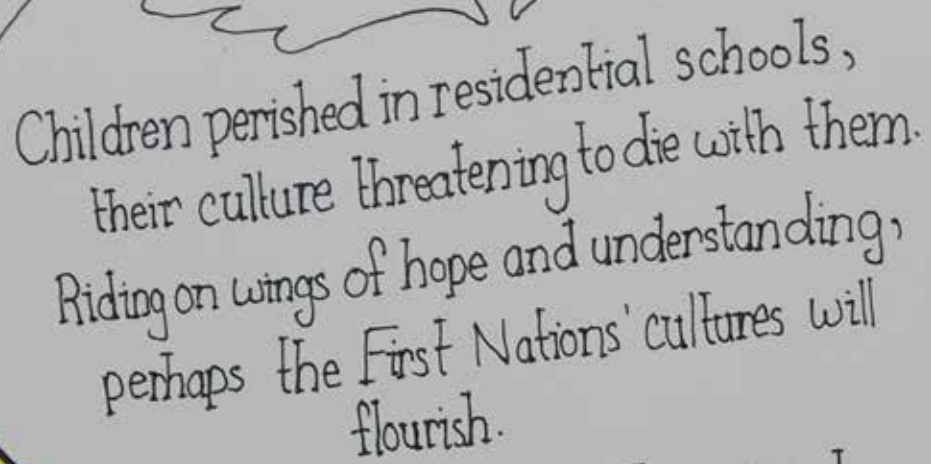 Children perished in residential schools,
their culture threatening to die with them.
Riding on wings of hope and understanding,
perhaps the First Nations' cultures will
flourish.